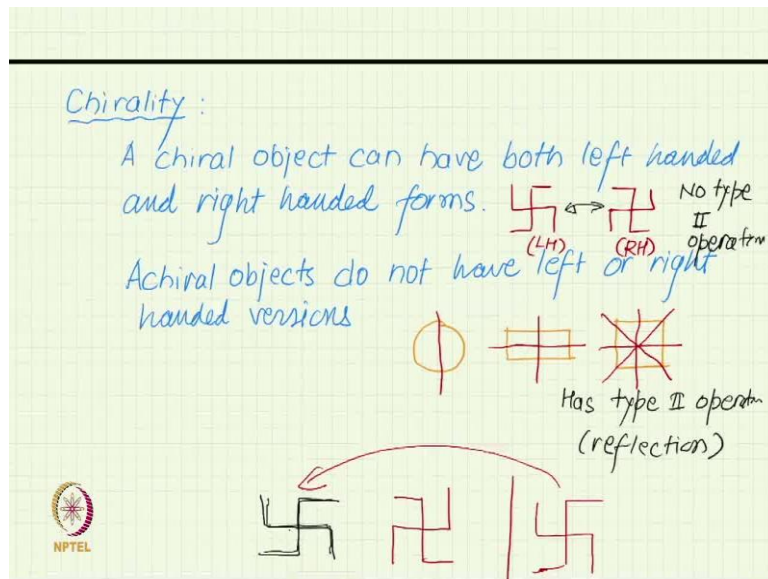 Chirality :
A chiral object can have both left handed
and right handed forms.
(LH) (RH)
No type
II
operation
Achiral objects do not have left or right
handed versions
Has type II operatn
(reflection)
NPTEL